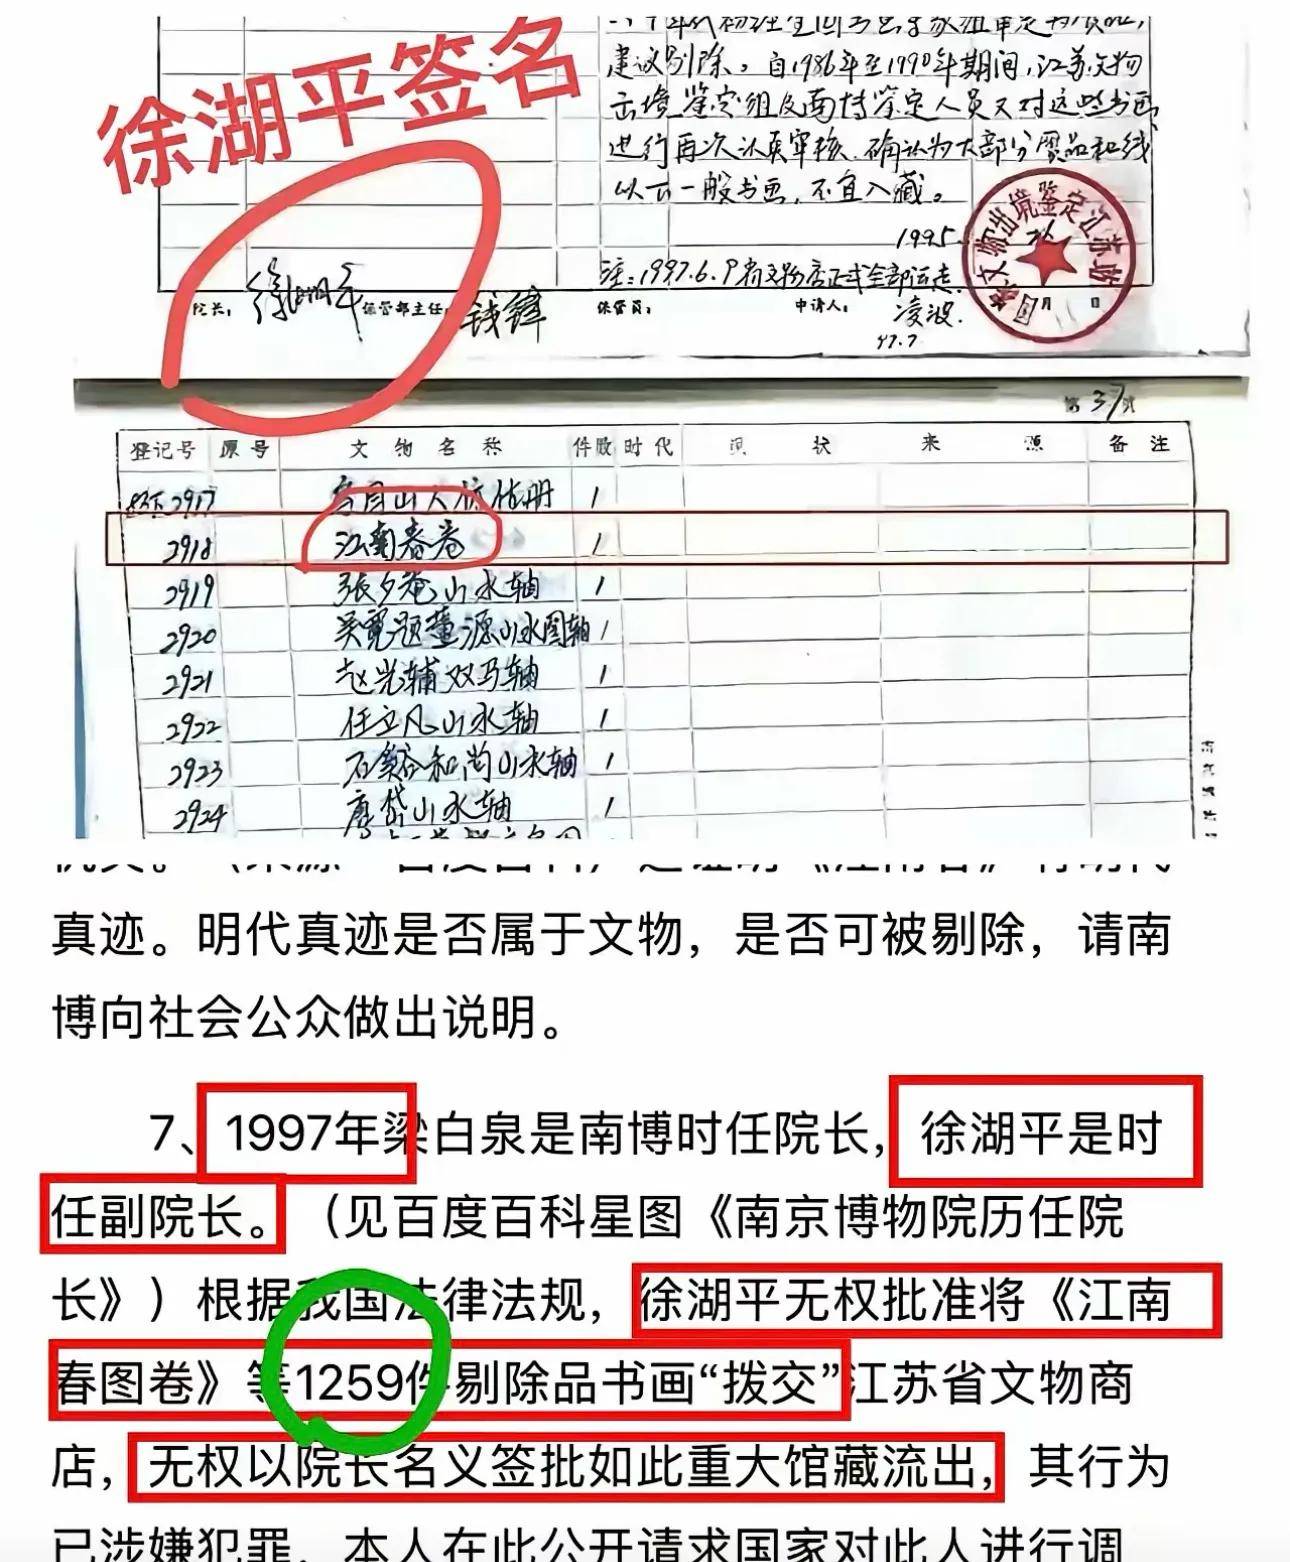 徐湖平签名
建议剔除。自1986年至1990年期间,江苏文物
出境鉴定组及两特鉴定人员又对这些书画
进行再次认真审核、确认为大部分赝品和线
以下一般书画,不宜入藏。
1995.
注:1997.6.9 省文物店正式全部运走.
国家文物出境鉴定江苏站
月 日
院长: 徐湖平 保管部主任: 钱锋 保管员: 申请人: 凌波.
97.7
第 37 页
登记号 原号 文物名称 件数 时代 现状 来源 备注
2917 1
2918 江南春卷 1
2919 張夕菴山水轴 1
2920 吴寬题董源山水图轴 1
2921 赵光辅双马轴 1
2922 任立凡山水轴 1
2923 石谿和尚山水轴 1
2924 唐岱山水轴 1
真迹。明代真迹是否属于文物,是否可被剔除,请南
博向社会公众做出说明。
7、1997年梁白泉是南博时任院长,徐湖平是时
任副院长。(见百度百科星图《南京博物院历任院
长》)根据我国法律法规,徐湖平无权批准将《江南
春图卷》等1259件剔除品书画“拨交”江苏省文物商
店,无权以院长名义签批如此重大馆藏流出,其行为
已涉嫌犯罪,本人在此公开请求国家对此人进行调